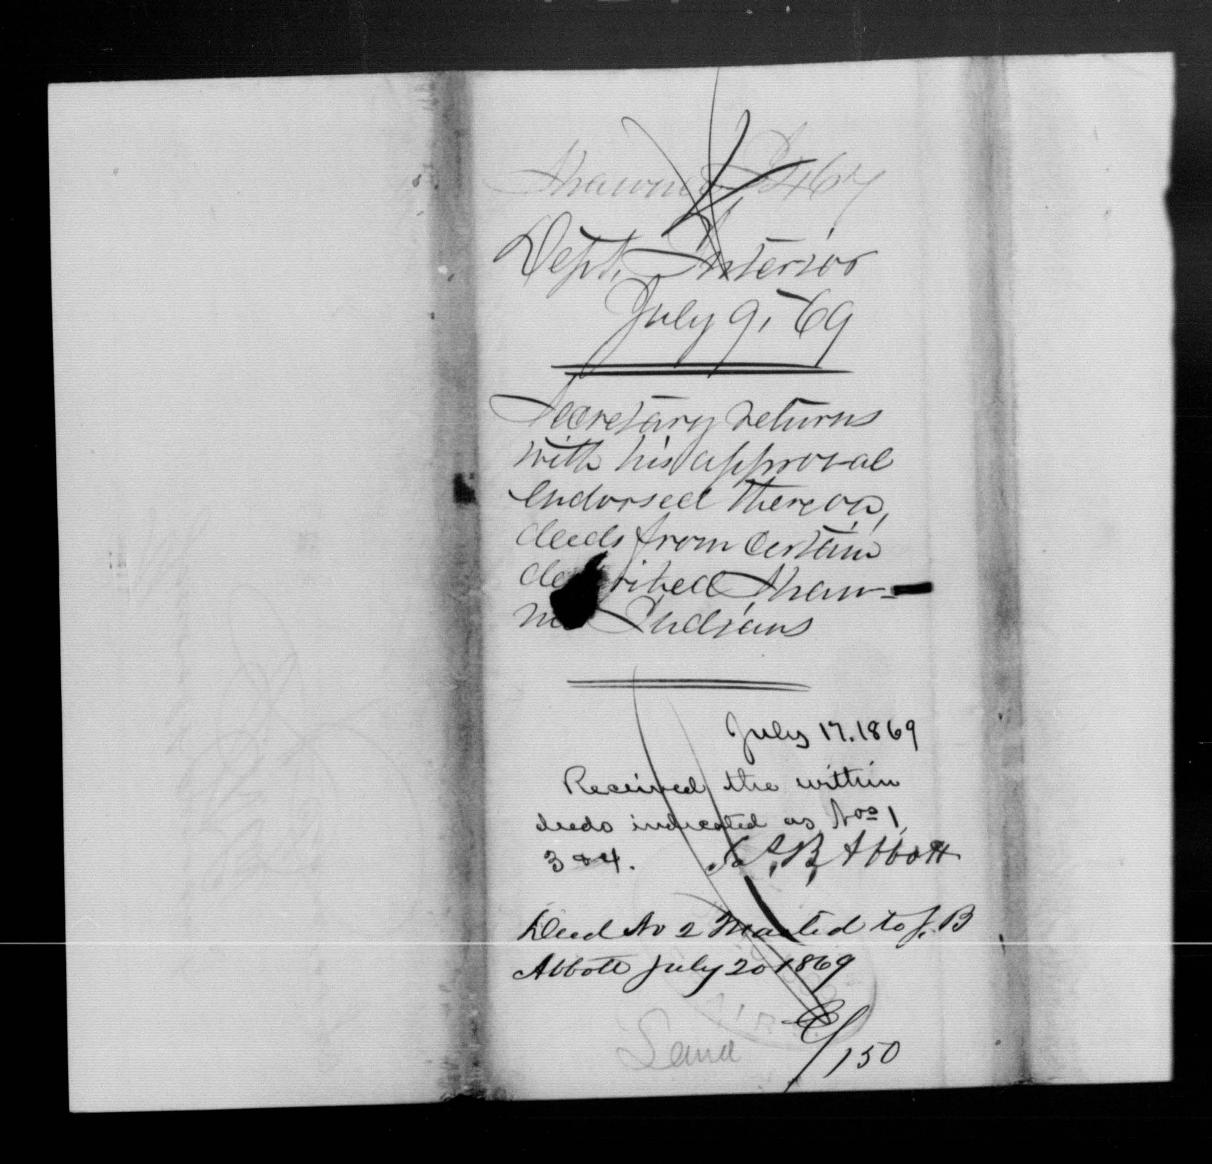 Shawnee I 467
Dept. Interior
July 9, '69
Secretary returns
with his approval
endorsed thereon,
deeds from certain
described Shaw-
nee Indians
July 17. 1869
Received the within
deeds indicated as Nos 1,
3 & 4. J. B. Abbott
Deed No 2 Mailed to J. B
Abbott July 20 1869
C/150
Land